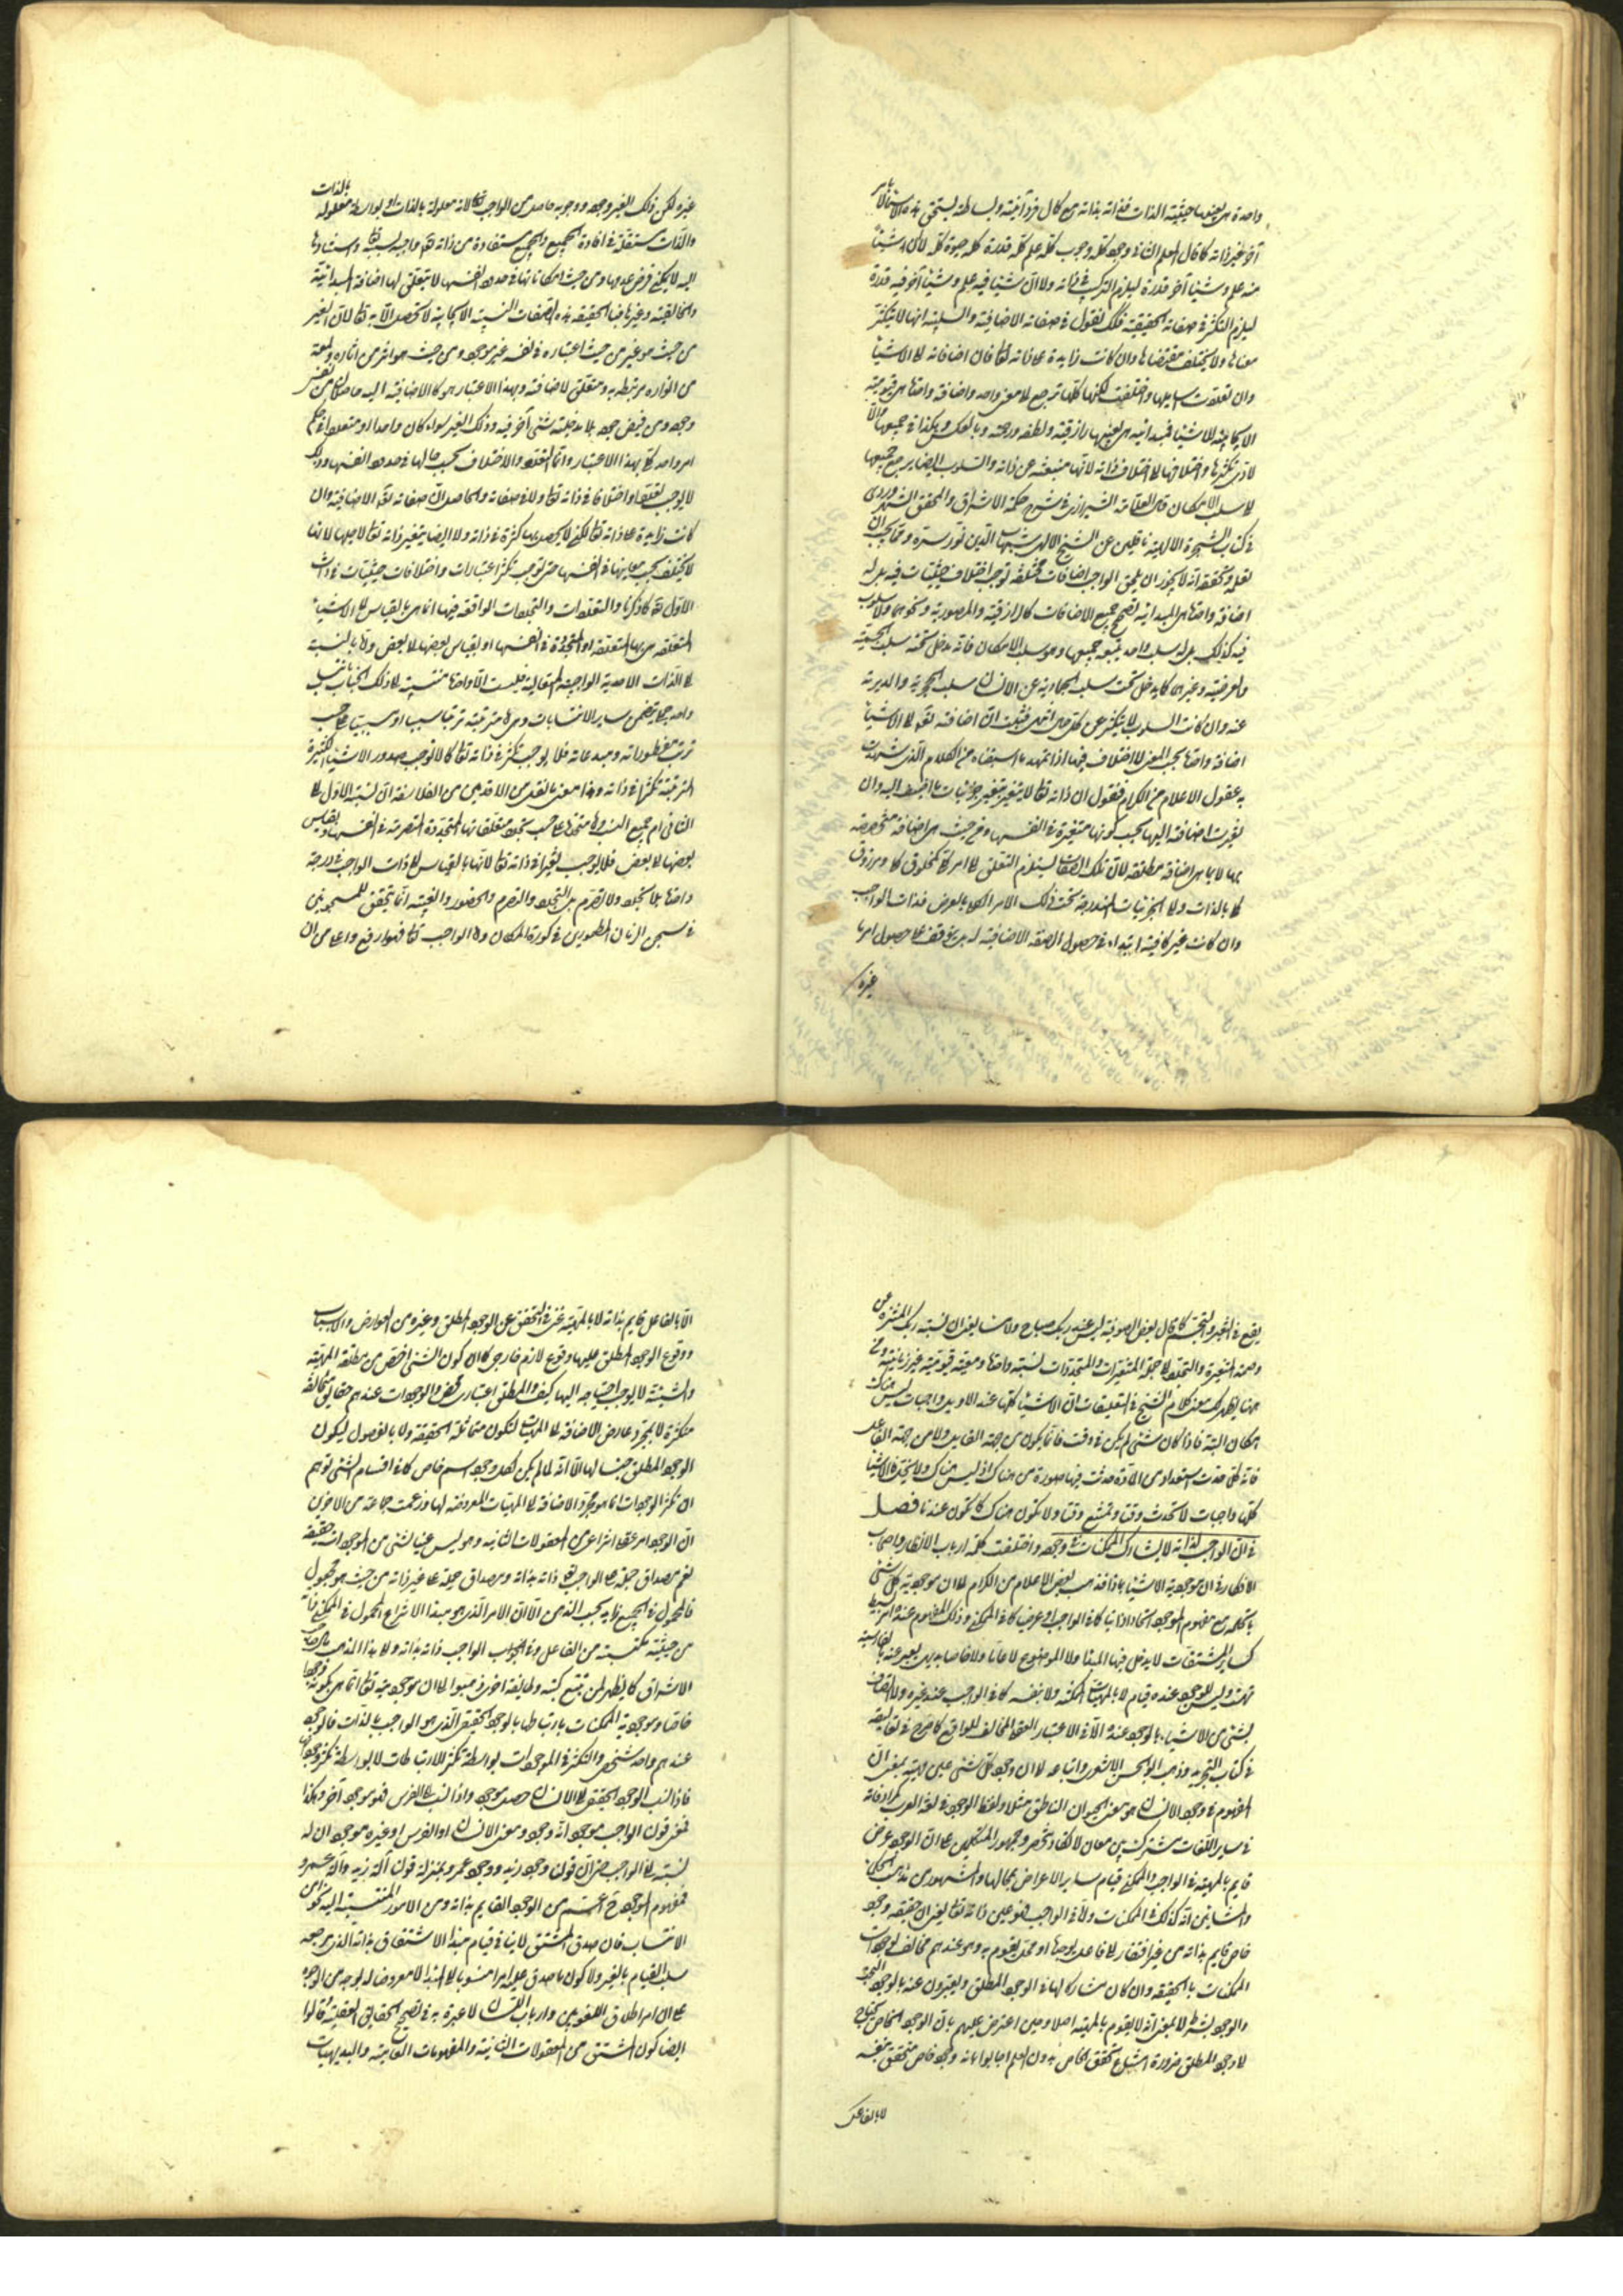 واحدة هي بعينها حيثية الذات فذاته بذاته مع كمال فردانيته وبساطته يستحق هذه الاسماء لا بامر
آخر غير ذاته كما قال المعلم الثاني وجود كله وجوب كله علم كله قدرة كله حيوة كله لا ان شيئا
منه علم وشيئا آخر قدرة ليلزم التركب في ذاته ولا ان شيئا فيه علم وشيئا آخر فيه قدرة
ليلزم التكثر في صفاته الحقيقية فكذلك نقول في صفاته الاضافية والسلبية انها لا يتكثر
معناها ولا يختلف مقتضاها وان كانت زايدة على ذاته تعالى فان اضافاته الى الاشياء
وان تعددت اساميها واختلفت لكنها كلها ترجع الى معنى واحد واضافة واحدة هي قيوميته
الايجابية للاشياء فمبدائيته هي بعينها رازقيته ولطفه ورحمته وبالعكس وهكذا في جميعها والا
لادى تكثرها واختلافها الى اختلاف ذاته لانها منبعثة عن ذاته والسلوب ايضا يرجع جميعها
الى سلب الامكان قال العلامة الشيرازي في شرح حكمة الاشراق والمحقق الشهرزوري
في كتاب الشجرة الالهية ناقلين عن الشيخ الالهي شهاب الدين نور سره ومما يجب ان
تعلمه وتحققه انه لا يجوز ان يلحق الواجب اضافات مختلفة توجب اختلاف حيثيات فيه بل له
اضافة واحدة هي المبدائية تصحح جميع الاضافات كالرازقية والمصورية ونحوهما ولا سلوب
فيه كذلك بل له سلب واحد يتبعه جميعها وهو سلب الامكان فانه يدخل تحته سلب الجسمية
والعرضية وغيرهما كما يدخل تحت سلب الجمادية عن الانسان سلب الحجرية والمدرية
عنه وان كانت السلوب لا يتكثر على كل حال انتهى فثبت ان اضافته تعالى الى الاشياء
اضافة واحدة بحسب المعنى لا اختلاف فيها اذا تمهد ما استفدناه من الكلام الذي شهدت
به عقول الاعلام من الكرام فنقول ان ذاته تعالى لا يتغير بتغير جزئيات ما اضيف اليه وان
تغيرت اضافته اليها بحسب كونها متغيرة في انفسها ومن حيث هي اضافة مخصوصة
بها لا بما هي اضافة مطلقة لان تلك الصفات يستلزم التعلق الى امر كلي كمخلوق كلي ومرزوق
كلي بالذات والى الجزئيات المندرجة تحت ذلك الامر الكلي بالعرض فذات الواجب
وان كانت غير كافية ابتداء في حصول الصفة الاضافية له بل يتوقف على حصول امر ما
غيره
غيره لكن ذلك الغير وجوده ووجوبه حاصل من الواجب تعالى لانه معلوله بالذات او بواسطة معلوله بالذات
والذات مستقلة في افادة الجميع والجميع مستفادة من ذاته فهو واجبة بنسبته تعالى واستنادها
اليه لا يمكن فرض عدمها ومن حيث امكاناتها في حدود انفسها لا يتعلق لها اضافة المبدائية
والخالقية وغيرها فبالحقيقة هذه الصفات النسبية الايجابية لا تحصل الا به تعالى لان الغير
من حيث هو غير من حيث اعتباره في نفسه غير موجود ومن حيث هو اثر من آثاره ولمعة
من انواره مرتبط به ومتعلق الاضافة وبهذا الاعتبار هو كالاضافة اليه حاصلة من نفس
وجوده ومن فيض جوده بلا مدخلية شيء آخر فيه وذلك الغير سواء كان واحدا او متعددا في حكم
امر واحد كلي بهذا الاعتبار وانما التعدد والاختلاف بحسب حالها في حدود انفسها وذلك
لا يوجب تعددا واختلافا في ذاته تعالى ولا في صفاته والحاصل ان صفاته تعالى الاضافية وان
كانت زايدة على ذاته تعالى لكن لا يحصل بها كثرة في ذاته ولا ايضا يتغير ذاته تعالى لاجلها لانها
لا يختلف بحسب معانيها في انفسها حتى توجب تكثر اعتبارات واختلافات حيثيات في ذات
الاول تعالى كما ذكرنا والتعددات والتجددات الواقعة فيها انما هي بالقياس الى الاشياء
المتعلقة هي بها المتعددة او المتجددة في انفسها او بقياس بعضها الى بعض واما بالنسبة
الى الذات الاحدية الواجبية المتعالية فليست الا واحدة منتسبة الى ذلك الجناب بنسب
واحد جملي يتضمن ساير الانتسابات وهي مترتبة ترتبا سببيا ومسببيا على حسب
ترتب مفطوراته ومبدعاته فلا يوجب تكثرا في ذاته تعالى كما لا يوجب صدور الاشياء الكثيرة
المترتبة تكثرا في ذاته وهذا معنى ما نقل من الاقدمين من الفلاسفة ان نسبة الاول الى
الثاني ام جميع النسب واما تجددها على حسب تجدد متعلقاتها المتجددة المتصرمة في انفسها وبقياس
بعضها الى بعض فلا يوجب تغيرا في ذاته تعالى لانها بالقياس الى ذات الواجب في درجة
واحدة بلا تجدد ولا تصرم بل التجدد والتصرم والحضور والغيبة انما يتحقق للمسجونين
في سجن الزمان المطمورين في كورة المكان واما الواجب تعالى فهو ارفع واعلى من ان
يقع في التغير والتجسم كما قال بعض الصوفية ليس عند ربك صباح ولا مساء يعني ان نسبة ربك المنزه عن
وصمة التغيرة والتجدد الى جملة المتغيرات والمتجددات نسبة واحدة ومعية قيومية غير زمانية ومن
ههنا يظهر لك معنى كلام الشيخ في التعليقات ان الاشياء كلها عند الاوايل واجبات ليس هناك
امكان البتة فاذا كان شيء لم يكن في وقت فانما يكون من جهة القابل ولا من جهة الفاعل
فانه كلما حدث استعداد من المادة حدثت فيها صورة من هناك اذ ليس هناك ولا يتجدد الاشياء
كلها واجبات لا تحدث وقتا وتمتنع وقتا ولا تكون هناك كما تكون عندنا فصل
في ان الواجب لذاته لا يشارك الممكنات في وجوده واختلفت كلمة ارباب الانظار واصحاب
الافكار في ان موجودية الاشياء بماذا فذهب بعض الاعلام من الكرام الى ان موجودية كل شيء
باتحاده مع مفهوم الموجود اتحادا ذاتيا كما في الواجب او عرضيا كما في الممكن وذلك المفهوم عنده امر بسيط
كساير المشتقات لا يدخل فيها المبدأ ولا الموضوع لا عاما ولا خاصا بديهي يعبر عنه بالفارسية
بهست وليس للوجود عنده قيام لا بالمهيات الممكنة ولا بنفسه كما في الواجب عند غيره ولا اتصاف
لشيء من الاشياء بالوجود عنده الا في الاعتبار العقلي المخالف للواقع كما صرح في تعاليقه
في كتاب التجريد وذهب ابو الحسن الاشعري واتباعه الى ان وجود كل شيء عين ذاته بمعنى ان
المفهوم من وجود الانسان هو معنى الحيوان الناطق مثلا ولفظ الوجود في لغة العرب ومرادفاته
في ساير اللغات مشترك بين معان لا تكاد تنحصر وجمهور المتكلمين على ان الوجود عرض
قايم بالمهية في الواجب والممكن قيام ساير الاعراض بمحالها والمشهور من مذاهب الحكماء
والمشائين انه كذلك في الممكنات والا في الواجب فهو عين ذاته تعالى يعني ان حقيقته وجود
خاص قايم بذاته من غير افتقار الى فاعل يوجدها او محل يقوم به وهي عندهم مخالف لوجودات
الممكنات بالحقيقة وان كان مشاركا لها في الوجود المطلق ويعبرون عنه بالوجود البحت
والوجود بشرط لا بمعنى انه لا يقوم بالمهية اصلا وحين اعترض عليهم بان الوجود الخاص يحتاج
الى وجود المطلق ضرورة امتناع تحقق الخاص بدون العام اجابوا بانه وجود خاص متحقق بنفسه
لا بالفاعل
الا بالفاعل قايم بذاته لا بالمهية غني في التحقق عن الوجود المطلق وغيره من العوارض والاسباب
ووقوع الوجود المطلق عليها وقوع لازم خارجي كما ان كون الشيء اخص من مطلقة المهية
والشيئية لا يوجب احتياجه اليها كيف والمطلق اعتباري محض والوجودات عندهم حقايق متخالفة
متكثرة لا بمجرد عارض الاضافة الى المهيات لتكون متماثلة الحقيقة ولا بالفصول ليكون
الوجود المطلق جنسا لها الا انه لما لم يكن لكل وجود اسم خاص كما في اقسام الشيء توهم
ان تكثر الوجودات انما هو بمجرد الاضافة الى المهيات المعروضة لها وزعمت جماعة من الآخرين
ان الوجود امر عقلي انتزاعي من المعقولات الثانية وهو ليس عينا لشيء من الموجودات حقيقة
نعم مصداق حمله على الواجب تعالى ذاته بذاته ومصداق حمله على غيره ذاته من حيث هو مجعول
فالمحمول في الجميع زايد بحسب الذهن الا ان الامر الذي هو مبدأ الانتزاع المحمول في الممكن ذاته
من حيثية مكتسبة من الفاعل وفي الواجب ذاته بذاته والى هذا المذهب صاحب
الاشراق كما يظهر لمن تتبع كتبه وطايفة اخرى ذهبوا الى ان موجوديته تعالى انما هي بكونه وجودا
خاصا وموجودية الممكنات بارتباطها بالوجود الحقيقي الذي هو الواجب بالذات فالوجود
عندهم واحد شخصي والتكثر في الموجودات بواسطة تكثر الارتباطات لا بواسطة تكثر وجوداتها
فاذا نسب الوجود الحقيقي الى الانسان حصل موجود واذا نسب الى الفرس فهو موجود آخر وهكذا
فمعنى قولنا الواجب موجود انه وجود ومعنى الانسان او الفرس او غيره موجود ان له
نسبة الى الواجب حتى ان قولنا وجود زيد ووجود عمرو بمنزلة قولنا اله زيد واله عمرو
فمفهوم الموجود ح اعم من الوجود القايم بذاته ومن الامور المنتسبة اليه نحوا من
الانتساب فان صدق المشتق لا ينافي قيام مبدأ الاشتقاق بذاته الذي مرجعه
سلب القيام بالغير ولا كون ما صدق عليه امرا منسوبا الى المبدأ لا معروضا له بوجه من الوجوه
على ان امر اطلاق اللغويين وارباب اللسان لا عبرة به في تصحيح الحقايق العقلية وقالوا
ايضا كون المشتق من المعقولات الثانية والمفهومات العامية والبديهيات